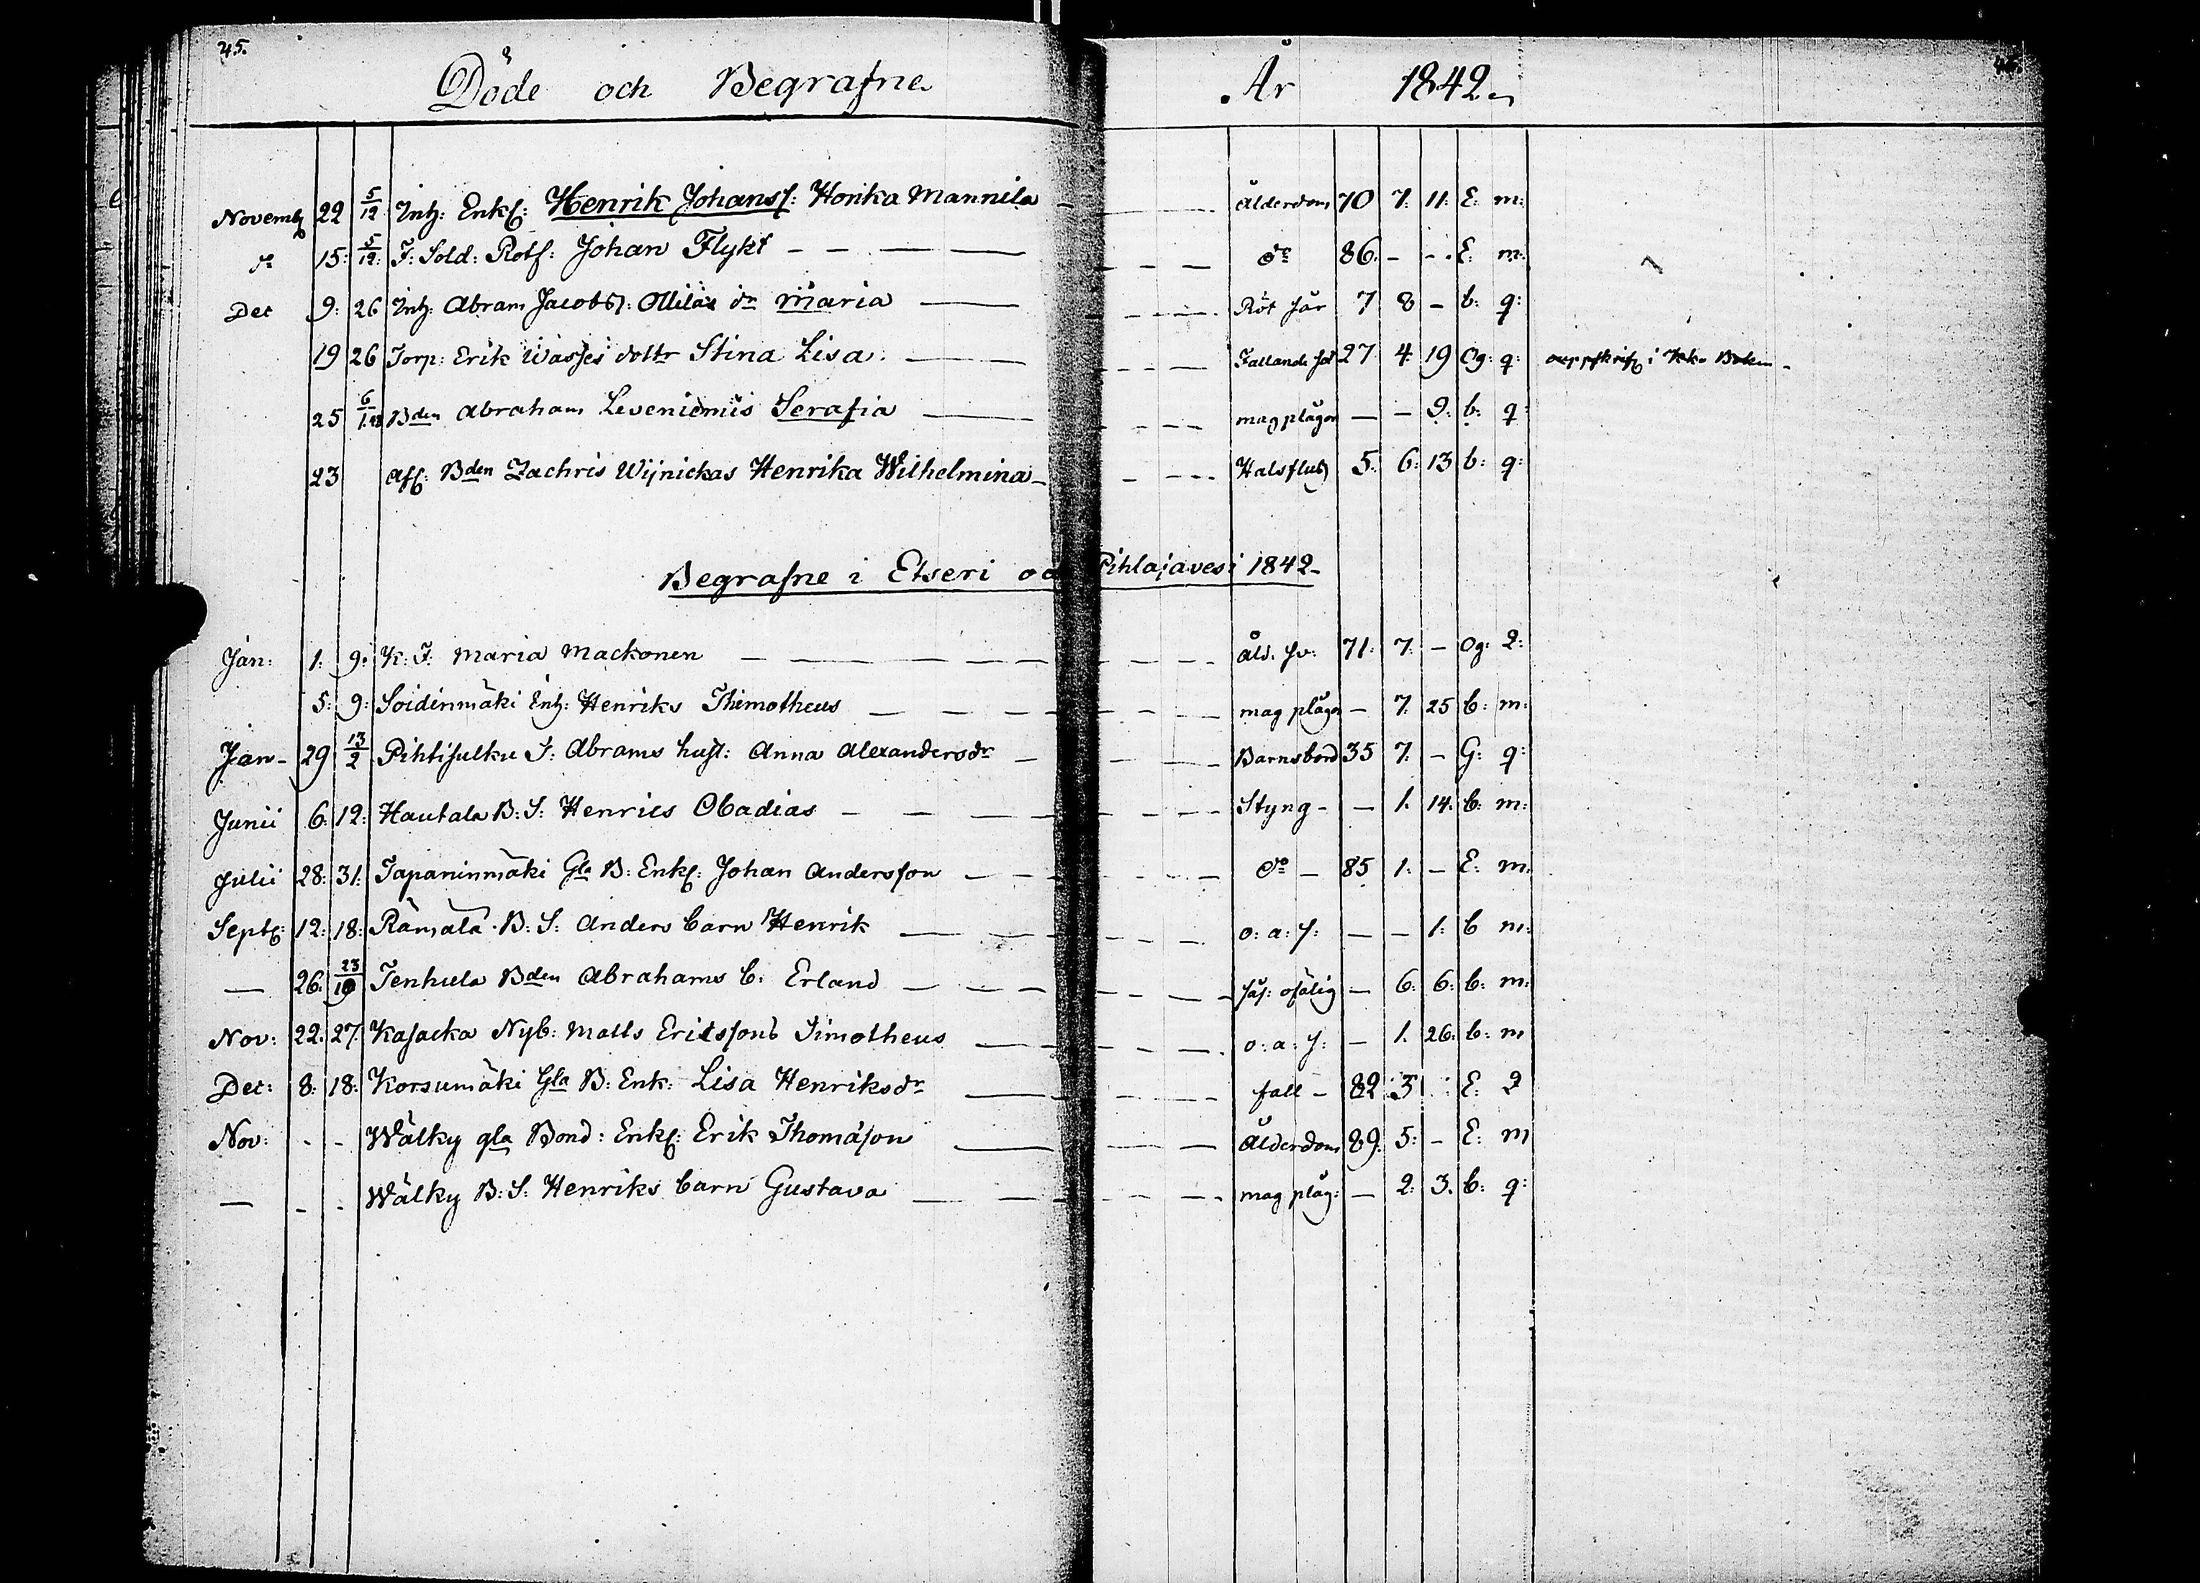 45. 46.
Döde och Begrafne År 1842.
Novemb 22 5/12 Inh: Enkl: Henrik Johanss: Honka Mannila Ålderdom 70 7: 11: E: m:
do 15: 5/12: F: Sold: Rotf: Johan Flykt do 86. - - E: m:
Dec 9: 26 Inh: Abram Jacobss: Ollilas dr Maria Röt sår 7 8 - b: q:
19 26 Torp: Erik Wasses dottr Stina Lisa. Fallande sot 27 4 19 Og: q: i Kko Boken
25 6/1.43 Bden Abraham Leveniemis Serafia magplågor — - 9: b: q:
23 Afl: Bden Zachris Wijnickas Henrika Wilhelmina Halsfluss 5: 6: 13 b: q:
Begrafne i Etseri oc Pihlajavesi 1842
Jan: 1: 9: K: F: Maria Mackonen Åld. 71: 7: - Og: q:
5: 9: Soidinmäki Inh: Henriks Thimotheus mag plågor — 7: 25 b: m:
Jan- 29 13/2 Pihtisulku T: Abrams hust: Anna Alexandersdr Barnsbörd 35 7: - G: q:
Junii 6: 12: Hautala B: S: Henrics Obadias Styng - — 1. 14: b: m:
Julii 28: 31: Tapaninmäki Gla B: Enkl: Johan Andersson do - 85 1: - E: m.
Septb: 12: 18: Rämälä B: S: Anders barn Henrik o: a: s: — - 1: b m:
— 26: 23/10 Tenhula Bden Abrahams b: Erland ofälig — 6: 6: b: m:
Nov: 22: 27. Kasacka Nyb: Matts Ericssons Timotheus o: a: s: — 1. 26: b: m
Dec: 8: 18: Korsumäki Gla B: Enk: Lisa Henriksdr fall - 82 3 E: q
Nov: - - Wälky gla Bond: Enkl: Erik Thomäson Ålderdom 89. 5: - E: m
— - - Wälky B: S: Henriks barn Gustava mag plåg: — 2: 3. b: q: